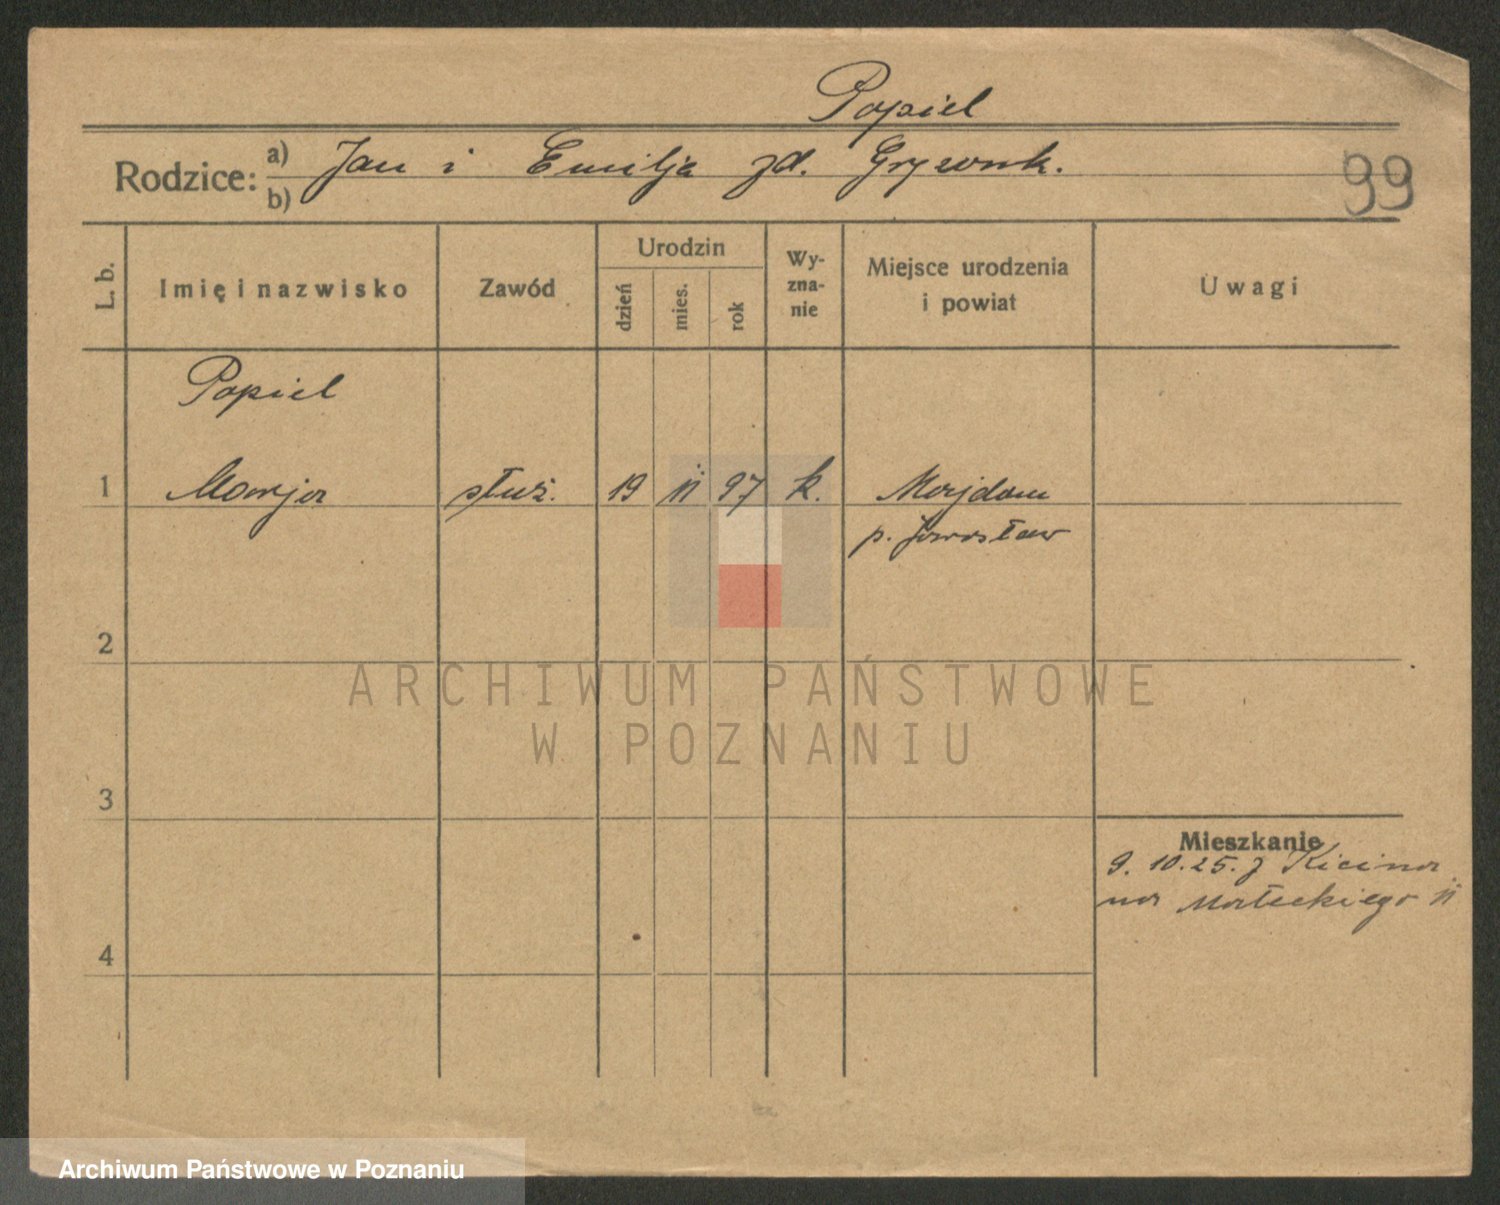 Popiel
Rodzice: a) Jan i Emilja zd. Gryzonk.
b)
99
L. b. Imię i nazwisko Zawód Urodzin dzień mies. rok Wyznanie Miejsce urodzenia i powiat Uwagi
Popiel
1 Marja służ. 19 II 97 k. Majdan
p. Jarosław
2
3
Mieszkanie
9. 10. 25. z Kicina
na Małeckiego II
4
ARCHIWUM PAŃSTWOWE
W POZNANIU
Archiwum Państwowe w Poznaniu